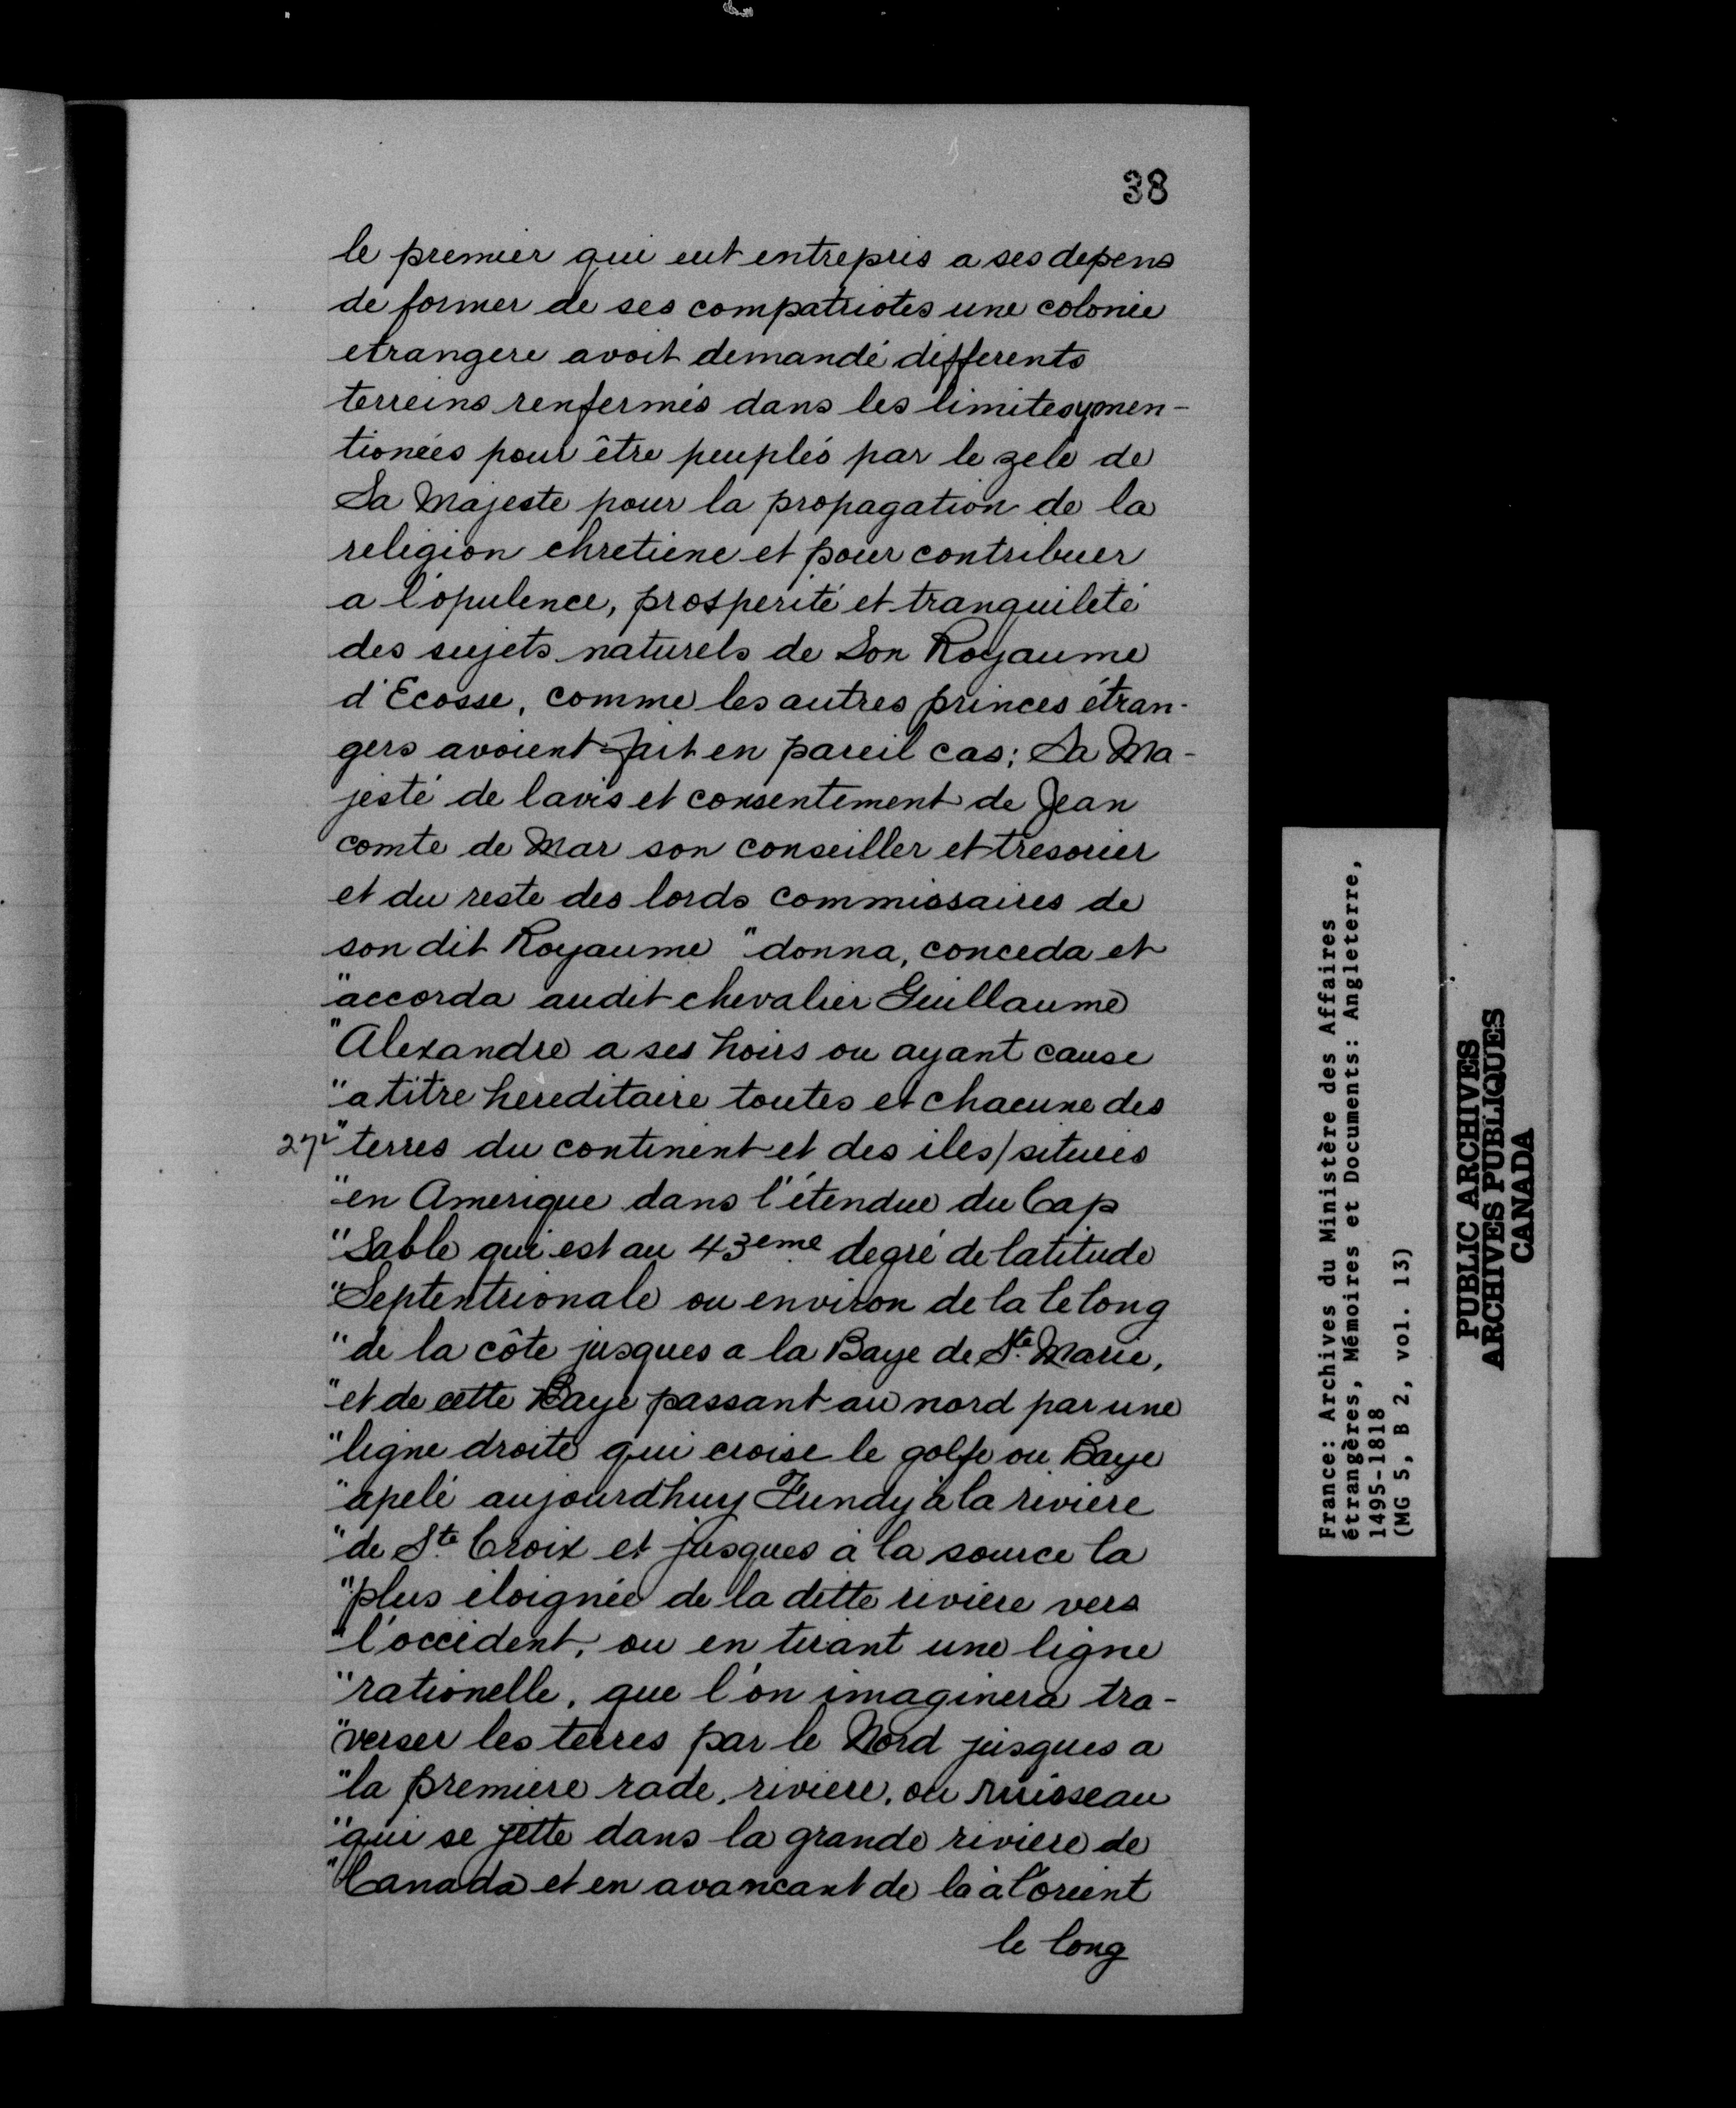 38
le premier qui eut entrepris a ses depens
de former de ses compatriotes une colonie
etrangere avoit demandé differents
terreins renfermés dans les limites y men-
tionées pour être peuplés par le zele de
Sa Majeste pour la propagation de la
religion chretiene et pour contribuer
a l'opulence, prosperité et tranquileté
des sujets naturels de Son Royaume
d'Ecosse, comme les autres princes étran-
gers avoient fait en pareil cas; Sa Ma-
jesté de lavis et consentement de Jean
comte de Mar son conseiller et tresorier
et du reste des lords commissaires de
son dit Royaume "donna, conceda et
"accorda audit chevalier Guillaume
"Alexandre a ses hoirs ou ayant cause
"a titre hereditaire toutes et chacune des
27v "terres du continent et des iles/situées
"en Amerique dans l'étendue du Cap
"Sable qui est au 43eme degré de latitude
"Septentrionale ou environ de la le long
"de la côte jusques a la Baye de Ste Marie,
"et de cette Baye passant au nord par une
"ligne droite qui croise le golfe ou Baye
"apelé aujourdhuy Fundy à la riviere
"de Ste Croix et jusques à la source la
"plus éloignée de la dette riviere vers
"l'occident, ou en tirant une ligne
"rationelle, que l'on imaginera tra-
"verser les terres par le Nord jusques a
"la premiere rade, riviere, ou ruisseau
"qui se jette dans la grande riviere de
"Canada et en avancant de la à l'orient
le long
France: Archives du Ministère des Affaires
étrangères, Mémoires et Documents: Angleterre,
1495-1818
(MG 5, B 2, vol. 13)
PUBLIC ARCHIVES
ARCHIVES PUBLIQUES
CANADA